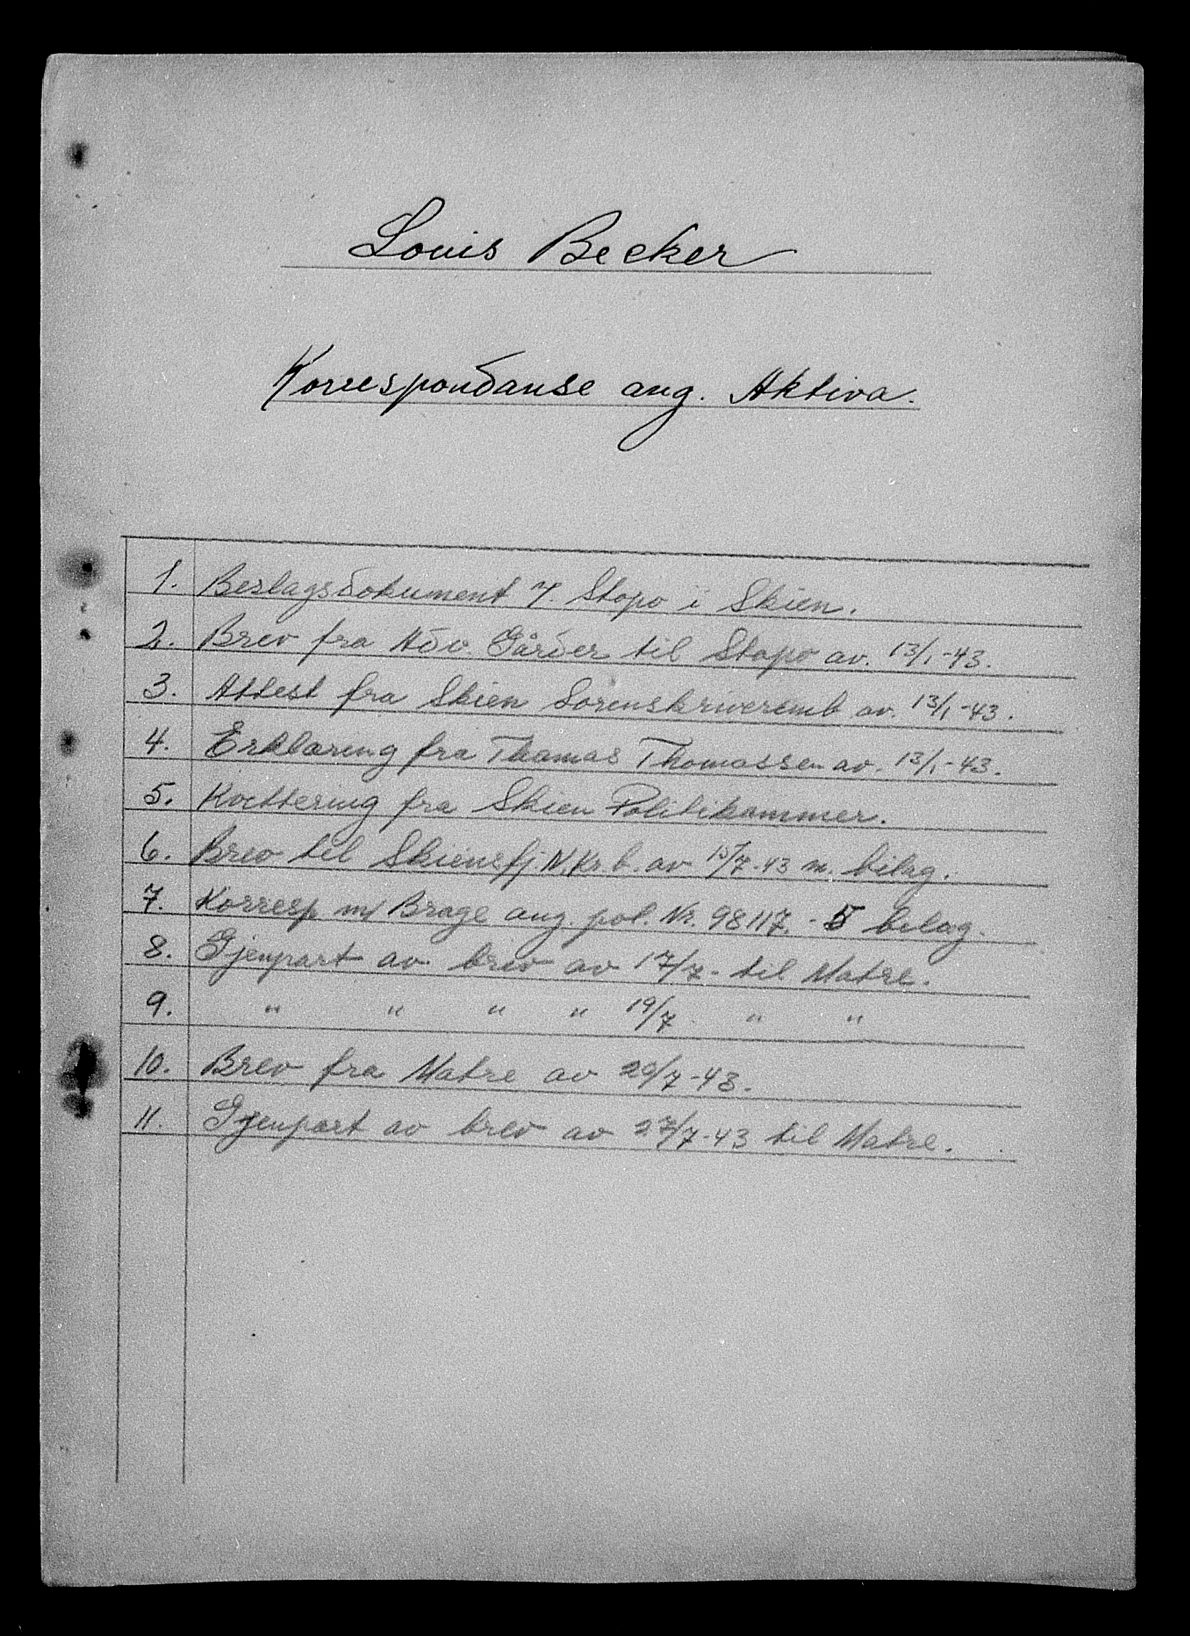 Louis Becker
Korrespondanse ang. Aktiva.
1. Beslagsdokument f. Stapo i Skien.
2. Brev fra Adv. Gårder til Stapo av. 13/1-43.
3. Attest fra Skien Sorenskriveremb av. 13/1-43.
4. Erklæring fra Thomas Thomassen av. 13/1-43.
5. Kvittering fra Skien Politikammer.
6. Brev til Skiensfj. N. Kr. b. av 15/7-43 m. bilag.
7. Korresp m/ Brage ang. pol. Nr. 98117. - 5 bilag.
8. Gjenpart av brev av 17/7- til Matre.
9. " " " " 19/7 " "
10. Brev fra Matre av 20/7-43.
11. Gjenpart av brev av 27/7-43 til Matre.